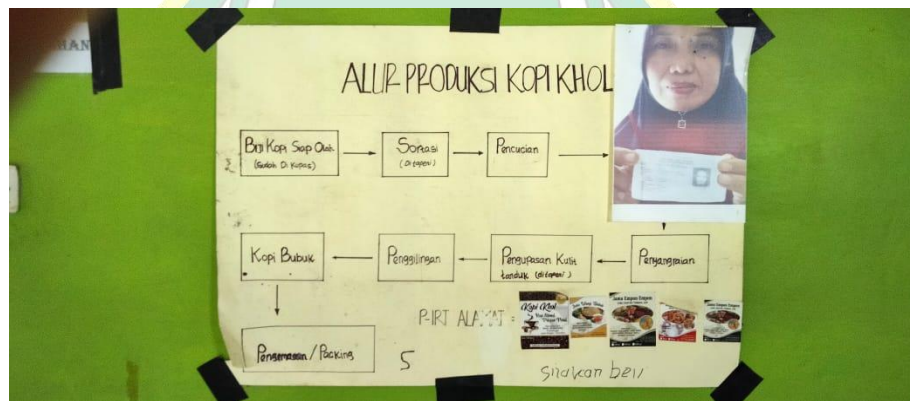 HAN
ALUR PRODUKSI KOPI KHOL
Biji Kopi Siap Olah
(Sudah Di Kupas)
Sortasi
(Ditaperi)
Pencucian
Penyangraian
Pengupasan Kulit
tanduk (ditaperi)
Penggilingan
Kopi Bubuk
Pengemasan / Packing
P-IRT ALAMAT :
Kopi Khol
5
Silakan beli